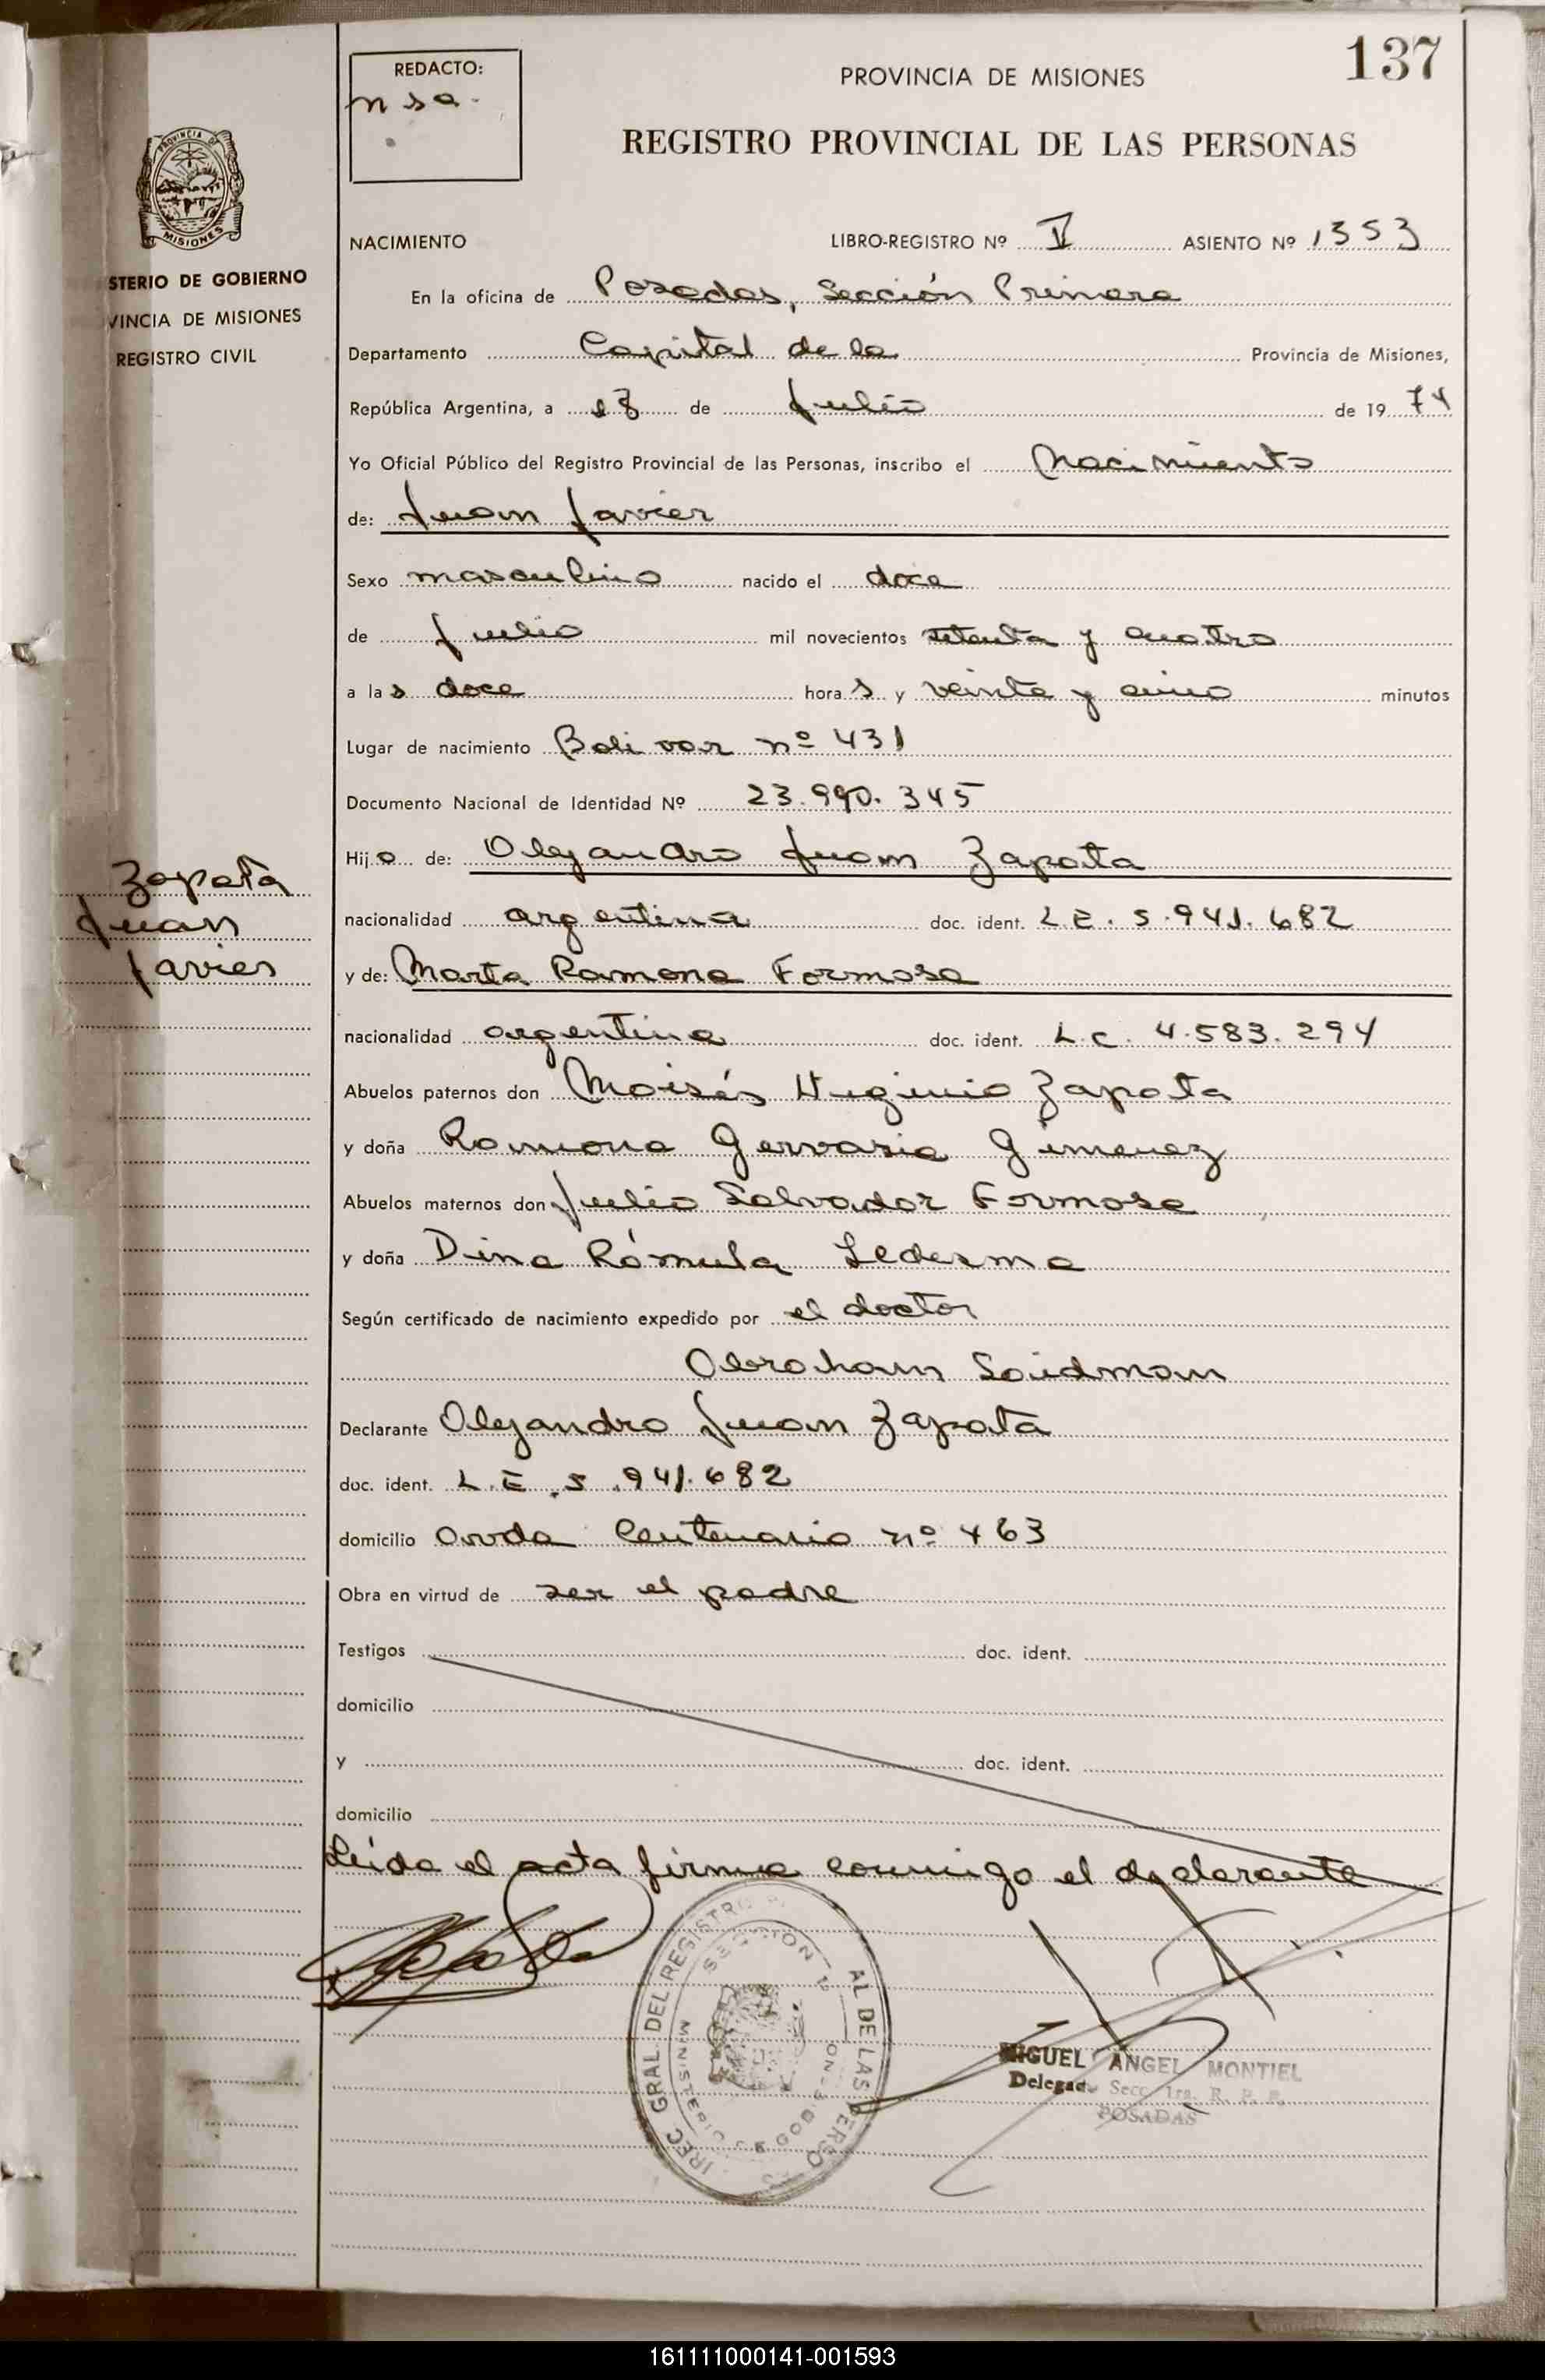 137
REDACTO:
n s a -
PROVINCIA DE MISIONES
REGISTRO PROVINCIAL DE LAS PERSONAS
PROVINCIA DE
MISIONES
STERIO DE GOBIERNO
VINCIA DE MISIONES
REGISTRO CIVIL
NACIMIENTO LIBRO-REGISTRO Nº V ASIENTO Nº 1353
En la oficina de Posadas, Sección Primera
Departamento Capital de la Provincia de Misiones,
República Argentina, a de Julio de 19 74
Yo Oficial Público del Registro Provincial de las Personas, inscribo el Nacimiento
de: Juan Javier
Sexo masculino nacido el doce
de Julio mil novecientos setenta y cuatro
a las doce horas y veinte y cinco minutos
Lugar de nacimiento Bolivar nº 431
Documento Nacional de Identidad Nº 23.990.345
Hijo de: Alejandro Juan Zapata
Zapata
Juan
Javier
nacionalidad argentina doc. ident. L.E. 5.941.682
y de: Marta Ramona Formosa
nacionalidad argentina doc. ident. L.C. 4.583.294
Abuelos paternos don Moisés Higinio Zapata
y doña Ramona Gervasia Gimenez
Abuelos maternos don Julio Salvador Formosa
y doña Dina Rómula Ledesma
Según certificado de nacimiento expedido por el doctor
Abraham Saidman
Declarante Alejandro Juan Zapata
doc. ident. L.E. 5.941.682
domicilio Avda Centenario nº 463
Obra en virtud de ser el padre
Testigos doc. ident.
domicilio
y doc. ident.
domicilio
Leida el acta firma conmigo el declarante
DIREC GRAL. DEL REGISTRO AL DE LAS PERSO
SECCION 1ª
MINISTERIO
MIGUEL ANGEL MONTIEL
Delegado Secc. 1ra. R. P. P.
POSADAS
161111000141-001593